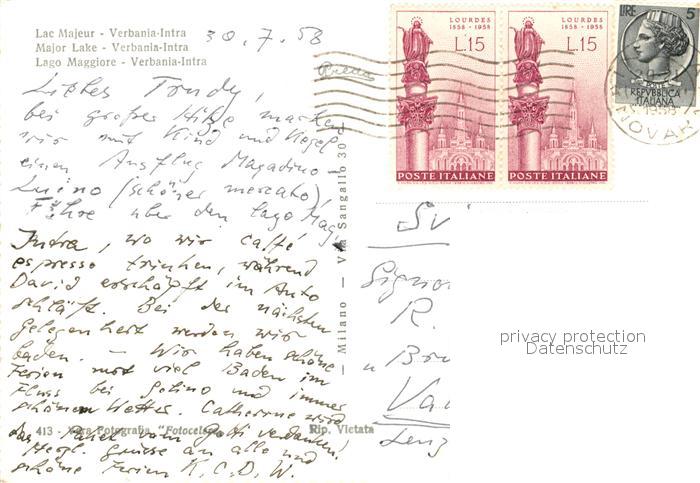 Lac Majeur - Verbania-Intra
Major Lake - Verbania-Intra
Lago Maggiore - Verbania-Intra
30.7.58
Liebes Trudy,
bei großer Hitze machen
wir mit Kind und Kegel
einen Ausflug Magadino -
Luino (schöner mercato),
Fähre über den Lago Magg.
Intra, wo wir caffé
espresso trinken, während
David erschöpft im Auto
schläft. Bei der nächsten
Gelegenheit werden wir
baden. - Wir haben schöne
Ferien mit viel Baden im
Fluss bei Golino und immer
schönem Wetter. Catherine wird
das Paket vom Götti verdanken.
Herzl. grüsse an alle und
schöne Ferien K. C. D. W.
413 - Vera Fotografia "Fotocelere"
Rip. Vietata
Milano - Via Sangallo 30
LOURDES
1858 - 1958
L.15
POSTE ITALIANE
LOURDES
1858 - 1958
L.15
POSTE ITALIANE
LIRE 5
REPVBBLICA
ITALIANA
NOVARA
Svi
Signo
R.
u Br
Va
privacy protection
Datenschutz